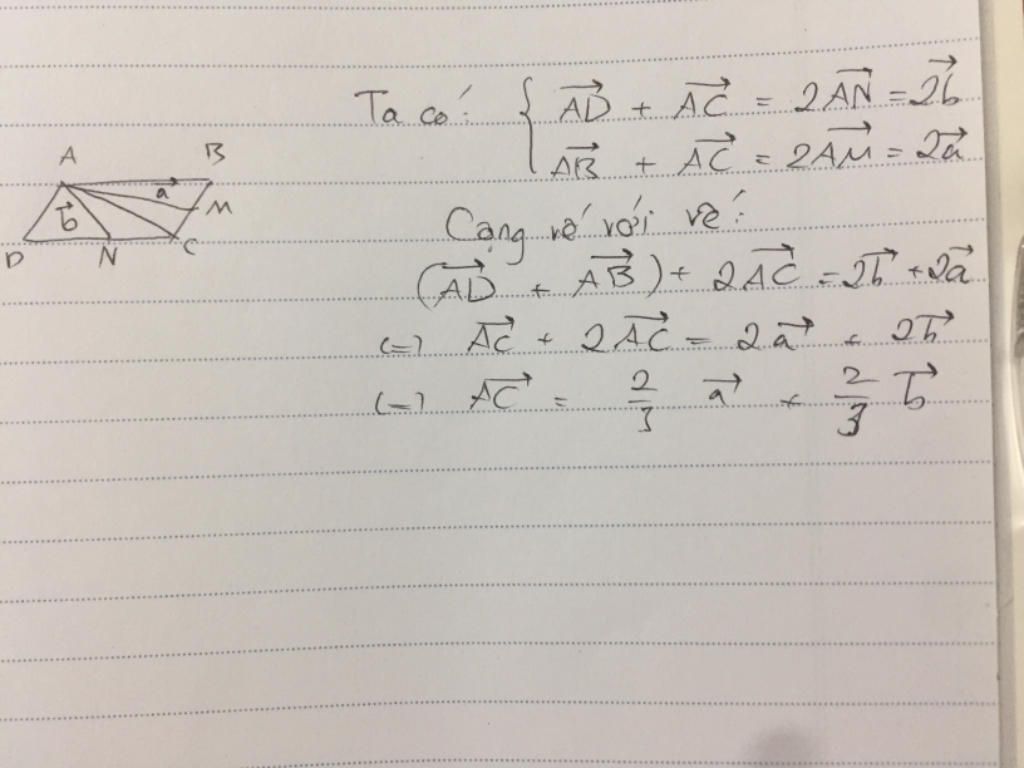 Ta có: { \overrightarrow{AD} + \overrightarrow{AC} = 2\overrightarrow{AN} = 2\vec{b}
\overrightarrow{AB} + \overrightarrow{AC} = 2\overrightarrow{AM} = 2\vec{a}
A B
\vec{a}
\vec{b} M
D N C
Cạng vế với vế:
(\overrightarrow{AD} + \overrightarrow{AB}) + 2\overrightarrow{AC} = 2\vec{b} + 2\vec{a}
(=) \overrightarrow{AC} + 2\overrightarrow{AC} = 2\vec{a} + 2\vec{b}
(=) \overrightarrow{AC} = \frac{2}{3} \vec{a} + \frac{2}{3} \vec{b}